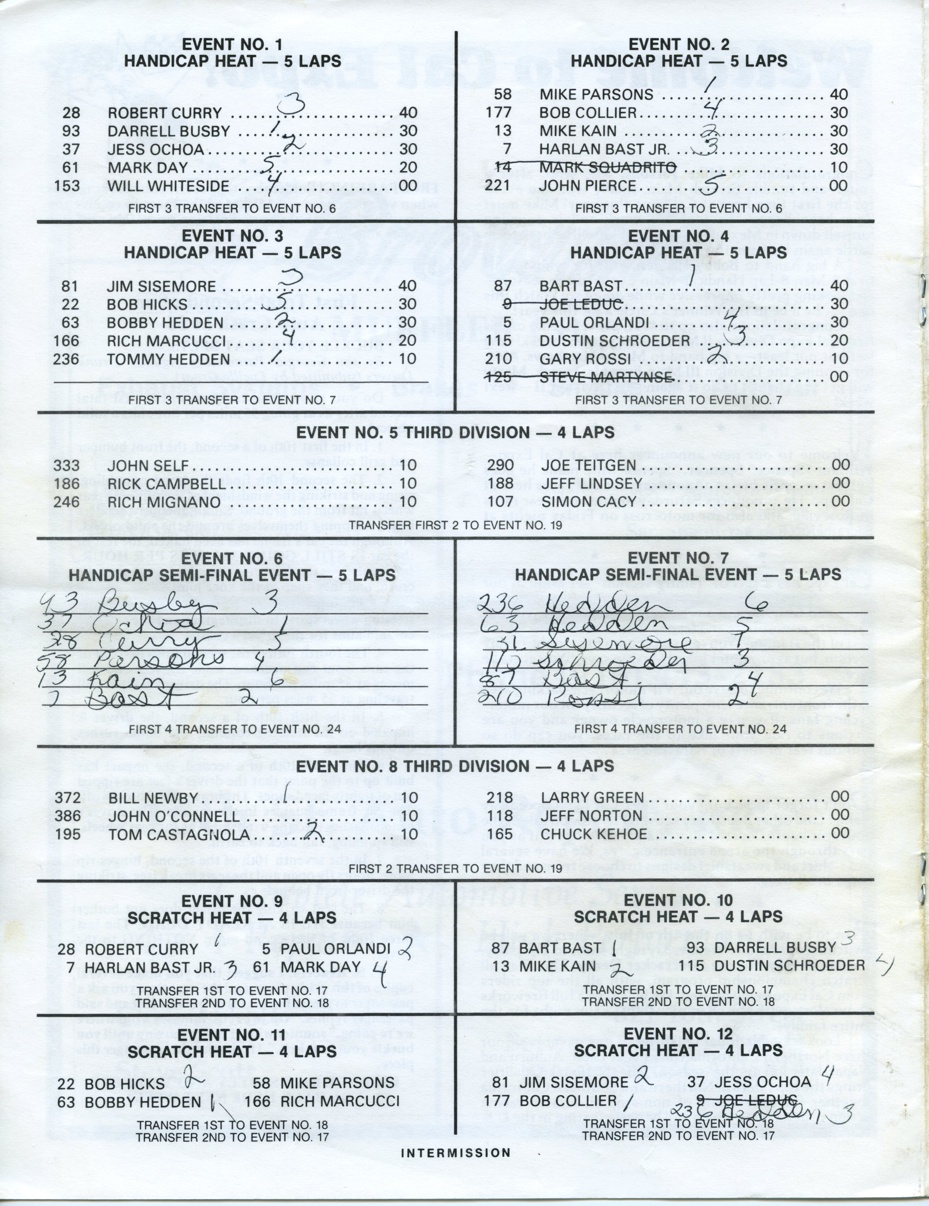 EVENT NO. 1
HANDICAP HEAT — 5 LAPS
28 ROBERT CURRY 3 40
93 DARRELL BUSBY 1 30
37 JESS OCHOA 2 30
61 MARK DAY 5 20
153 WILL WHITESIDE 4 00
FIRST 3 TRANSFER TO EVENT NO. 6
EVENT NO. 2
HANDICAP HEAT — 5 LAPS
58 MIKE PARSONS 1 40
177 BOB COLLIER 4 30
13 MIKE KAIN 2 30
7 HARLAN BAST JR. 3 30
14 MARK SQUADRITO 10
221 JOHN PIERCE 5 00
FIRST 3 TRANSFER TO EVENT NO. 6
EVENT NO. 3
HANDICAP HEAT — 5 LAPS
81 JIM SISEMORE 3 40
22 BOB HICKS 5 30
63 BOBBY HEDDEN 2 30
166 RICH MARCUCCI 4 20
236 TOMMY HEDDEN 1 10
FIRST 3 TRANSFER TO EVENT NO. 7
EVENT NO. 4
HANDICAP HEAT — 5 LAPS
87 BART BAST 1 40
9 JOE LEDUC 30
5 PAUL ORLANDI 4 30
115 DUSTIN SCHROEDER 3 20
210 GARY ROSSI 2 10
125 STEVE MARTYNSE 00
FIRST 3 TRANSFER TO EVENT NO. 7
EVENT NO. 5 THIRD DIVISION — 4 LAPS
333 JOHN SELF 10
186 RICK CAMPBELL 10
246 RICH MIGNANO 10
290 JOE TEITGEN 00
188 JEFF LINDSEY 00
107 SIMON CACY 00
TRANSFER FIRST 2 TO EVENT NO. 19
EVENT NO. 6
HANDICAP SEMI-FINAL EVENT — 5 LAPS
Busby 3
37 Ochoa 1
28 Curry
58 Parsons 4
13 Kain 6
7 Bast 2
FIRST 4 TRANSFER TO EVENT NO. 24
EVENT NO. 7
HANDICAP SEMI-FINAL EVENT — 5 LAPS
236 Hedden 6
63 Hedden 5
Sisemore 1
Schroeder 3
87 Bast 4
210 Rossi 2
FIRST 4 TRANSFER TO EVENT NO. 24
EVENT NO. 8 THIRD DIVISION — 4 LAPS
372 BILL NEWBY 1 10
386 JOHN O'CONNELL 10
195 TOM CASTAGNOLA 2 10
218 LARRY GREEN 00
118 JEFF NORTON 00
165 CHUCK KEHOE 00
FIRST 2 TRANSFER TO EVENT NO. 19
EVENT NO. 9
SCRATCH HEAT — 4 LAPS
28 ROBERT CURRY 1 5 PAUL ORLANDI 2
7 HARLAN BAST JR. 3 61 MARK DAY 4
TRANSFER 1ST TO EVENT NO. 17
TRANSFER 2ND TO EVENT NO. 18
EVENT NO. 10
SCRATCH HEAT — 4 LAPS
87 BART BAST 1 93 DARRELL BUSBY 3
13 MIKE KAIN 2 115 DUSTIN SCHROEDER 4
TRANSFER 1ST TO EVENT NO. 17
TRANSFER 2ND TO EVENT NO. 18
EVENT NO. 11
SCRATCH HEAT — 4 LAPS
22 BOB HICKS 2 58 MIKE PARSONS
63 BOBBY HEDDEN 1 166 RICH MARCUCCI
TRANSFER 1ST TO EVENT NO. 18
TRANSFER 2ND TO EVENT NO. 17
EVENT NO. 12
SCRATCH HEAT — 4 LAPS
81 JIM SISEMORE 2 37 JESS OCHOA 4
177 BOB COLLIER 1 9 JOE LEDUC
236 Hedden 3
TRANSFER 1ST TO EVENT NO. 18
TRANSFER 2ND TO EVENT NO. 17
INTERMISSION